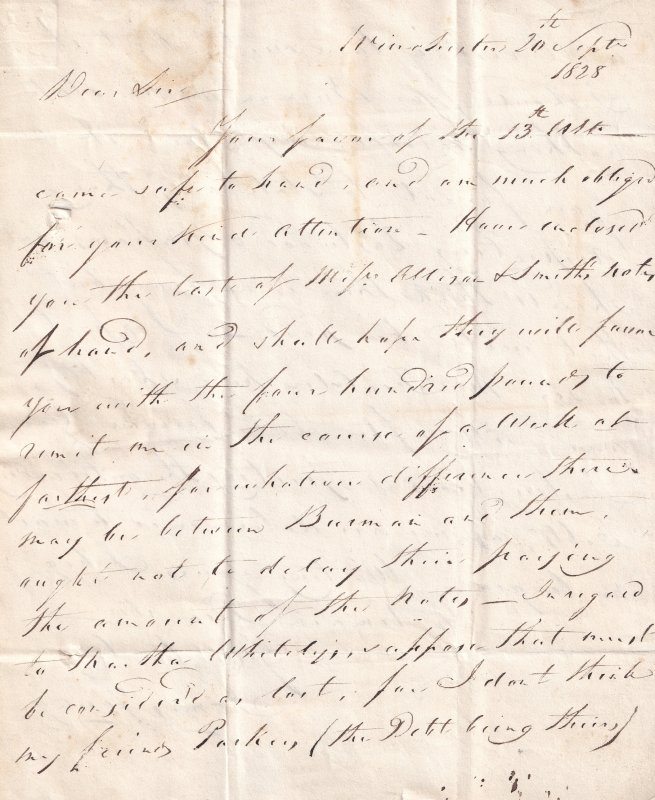 Winchester 20th Septr
1828
Dear Sir
Your favor of the 13th Ulto
came safe to hand, and am much obliged
for your kind attention - Have enclosed
you the last of Messrs Allison & Smith's notes
of hand, and shall hope they will favor
you with the four hundred pounds to
remit me in the course of a Week at
farthest, for whatever difference there
may be between Burman and them,
ought not to delay their paying
the amount of the Notes - In regard
to Whiteleys, suppose that must
be considered as lost, for I don't think
my friends Parkers (the Debt being theirs)